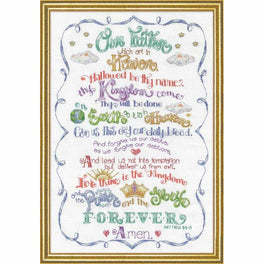 Our Father
which art in
Heaven
Hallowed be thy name.
Thy Kingdom come
Thy will be done
on Earth as it is in Heaven.
Give us this day our daily bread.
And forgive us our debts,
as we forgive our debtors.
And lead us not into temptation
but deliver us from evil.
For thine is the Kingdom
and the Power and the Glory
FOREVER.
MATTHEW 6:9-13
Amen.